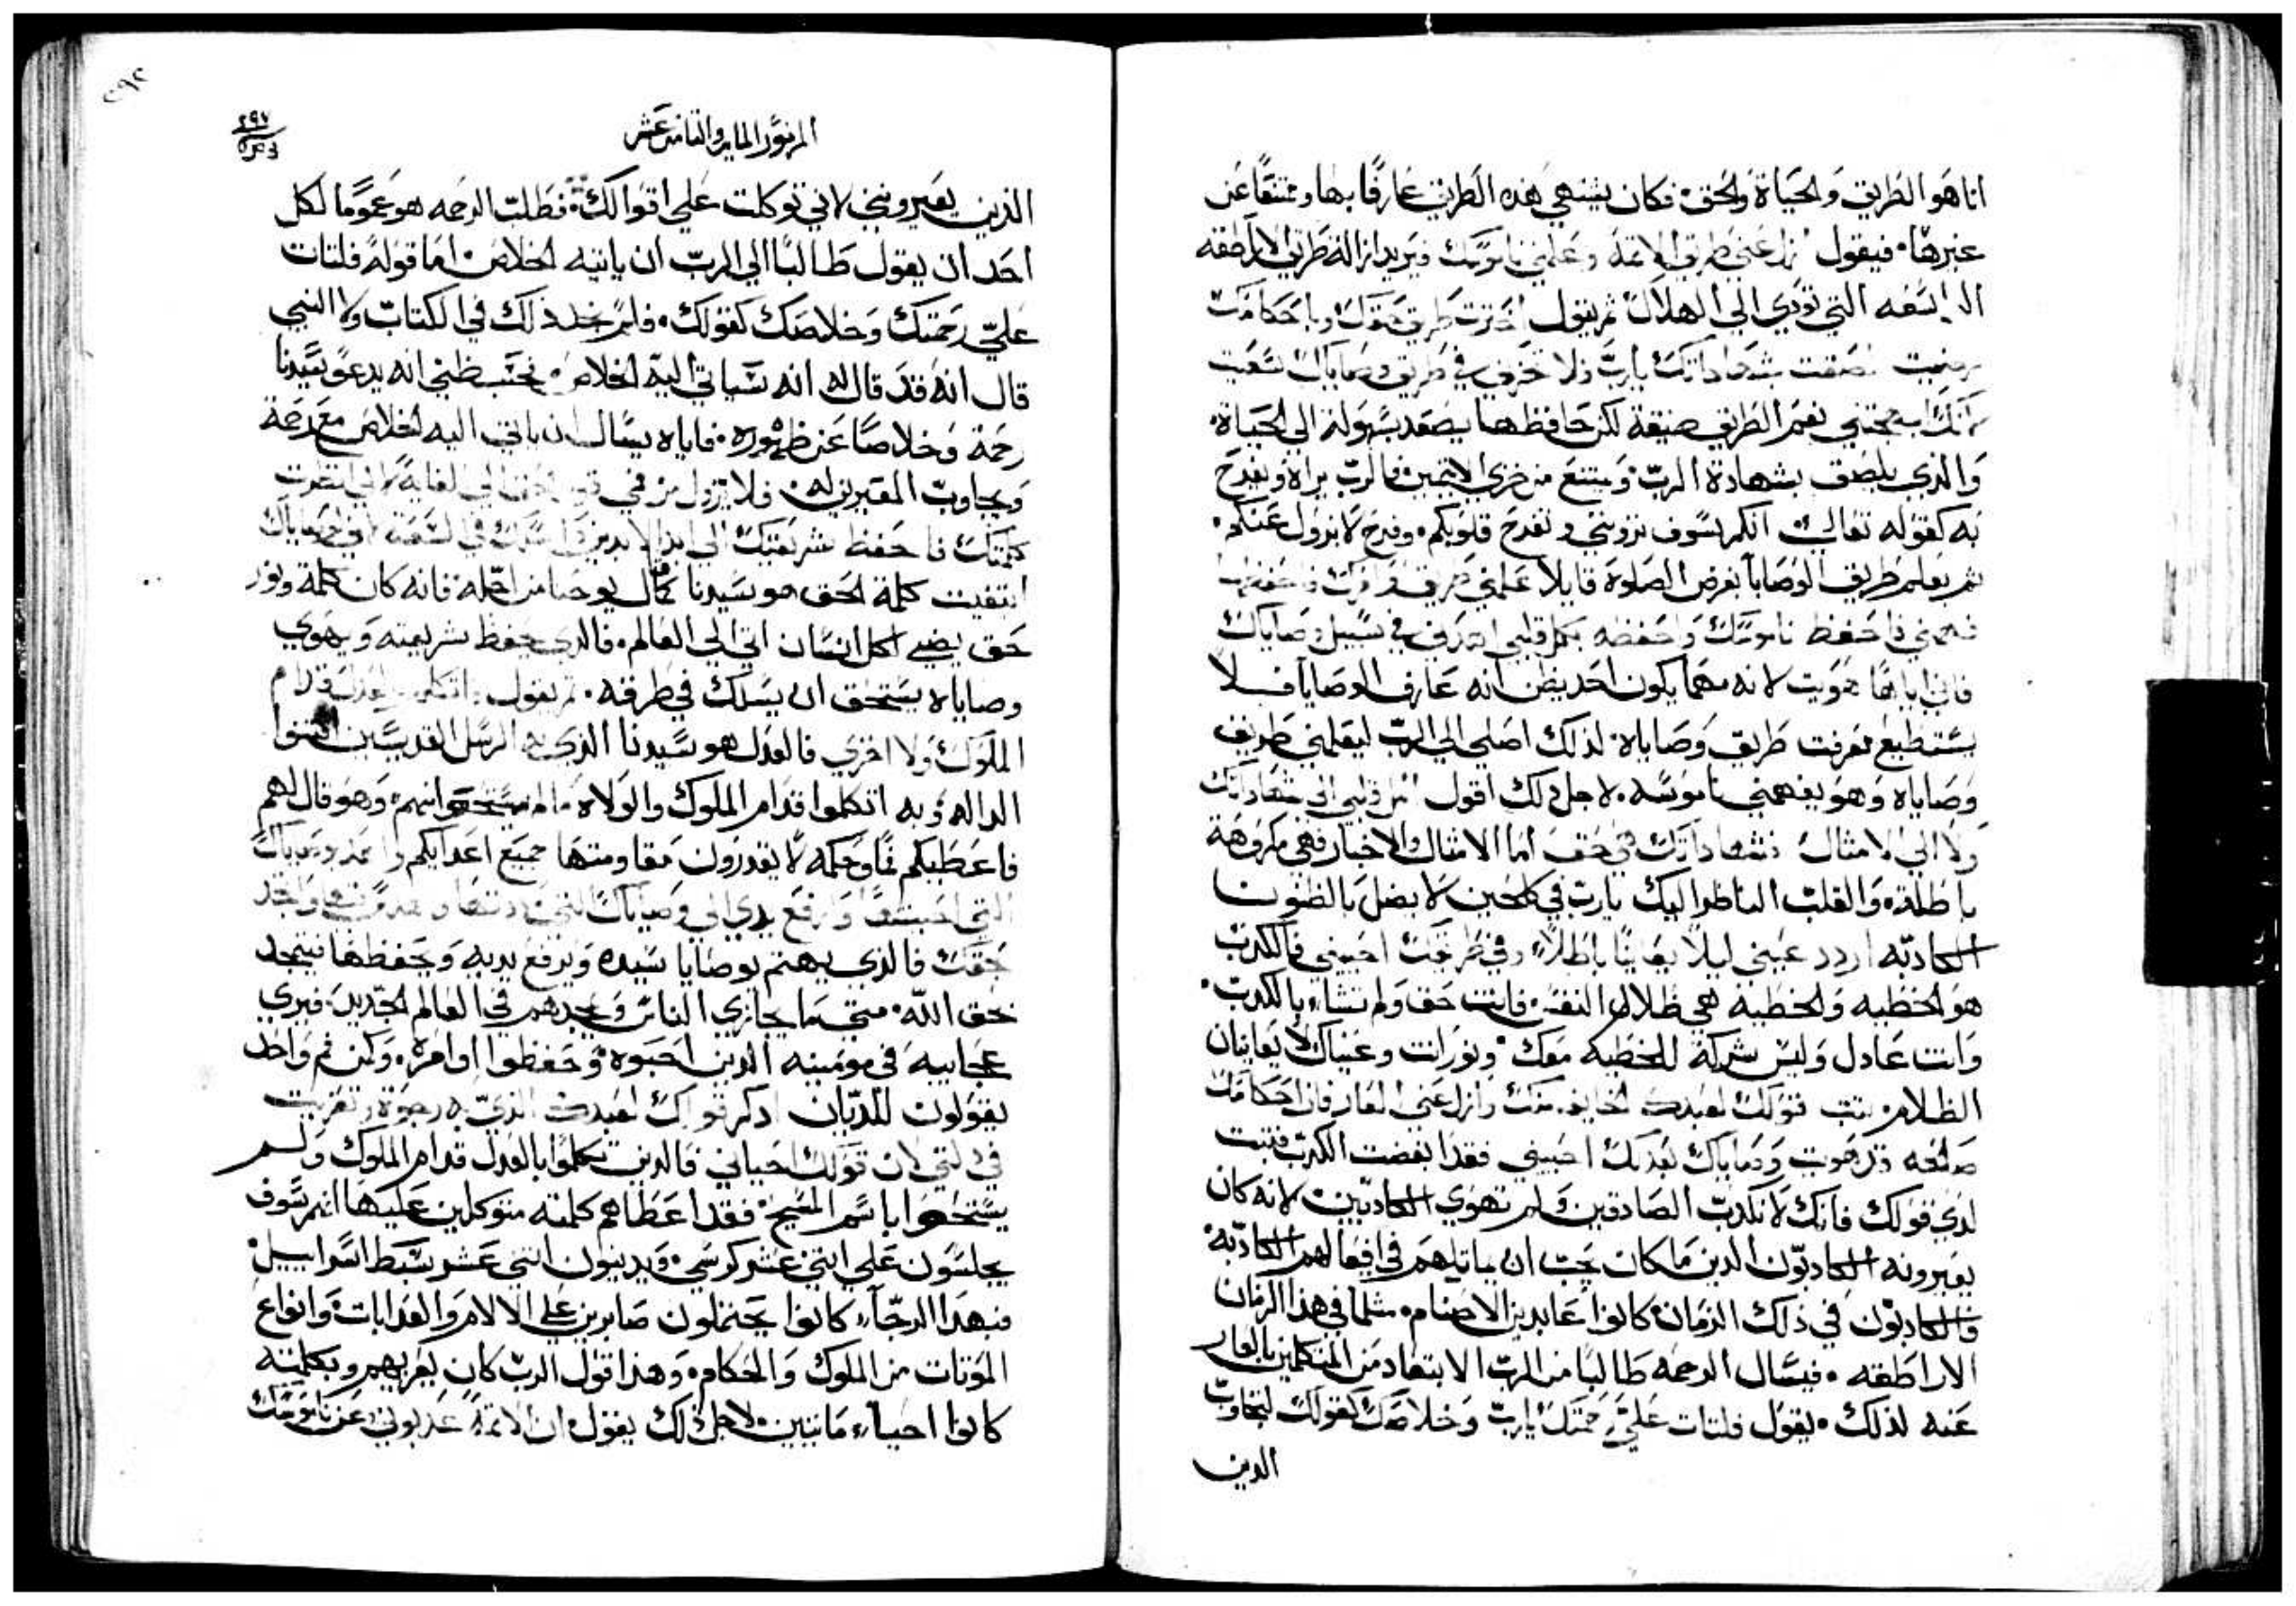 انا هو الطريق والحياة والحق۰ فكان يشتهي هذه الطريق عارفًا بها وممتنعًا عن
غيرها۰ فيقول ازل عني طريق الاثمة وعلمني ناموسك فيريد ازالة طريق الاراطقه
التي تودي الي الهلاك ثم يقول اخترت طريق حقك وباحكامك
رضيت لصقت بشهاداتك يارب فلا تخزني في طريق وصاياك سعيت
لانك ابهجتني نعم الطريق ضيقة لكن حافظها يصعد بسهولة الي الحياة۰
والذي يلصق بشهادة الرب۰ ويمتنع من خزي الاثمين فالرب يراه ويفرح
به كقوله تعالي انكم سوف تروني وتفرح قلوبكم۰ وفرح لا يزول عنكم۰
ثم يعلم طريق الوصايا بغرض الصلوة قايلا علمني طريق
فهمني فاحفظ ناموسك واحفظه بكل قلبي اهدني في سبيل وصاياك
فاني اياها هويت لانه مهما يكون احد يظن انه عارف الوصايا فلا
يستطيع معرفت طريق وصاياه۰ لذلك اصلي الي الرب ليعلمني طريق
وصاياه وهو يفهمني ناموسه۰ لاجل ذلك اقول امل قلبي الي شهاداتك
ولا الي الامثال فشهاداتك هي حق اما الامثال والاخبار فهي مكروهة
باطلة۰ والقلب الناظر اليك يارب في كل حين لا يضل بالظنون
الكادبه اردد عيني ليلا يعاينا باطلاً۰ وفي طرقك احييني فالكدب
هو الخطيه والخطية هي ظلام النفس۰ فانت حق ولم تشاء بالكدب۰
وانت عادل وليس شركة للخطية معك۰ ونور انت وعيناك لا يعاينان
الظلام۰ ثبت قولك لعبدك الخايف منك وازل عني العار فان احكامك
صالحه قد هويت وصاياك بعدلك احييني فقد ابغضت الكدب فثبت
لدي قولك فانك لا تكدب الصادقين ولم تهوي الكادبين لانه كان
يعيرونه الكادبون الدين ما كان يجب ان يماتلهم في افعالهم الكادبه۰
فالكادبون في ذلك الزمان كانوا عابدين الاصنام۰ مثلما في هذا الزمان
الاراطقه۰ فيسال الرحمه طالبًا من الرب الابتعاد من المتكلمين بالعار
عنه لذلك۰ يقول فلتات عليّ رحمتك يارب وخلاصك كقولك ليجاوب
الدين
٢٩٢
المزمور المايه والثامن عشر
٢٩٧
الدين يعيرونني لاني توكلت علي اقوالك۰ فطلب الرحمه هو عمومًا لكل
احد ان يقول طالبًا الي الرب ان ياتيه الخلاص۰ اما قوله فلتات
عليّ رحمتك وخلاصك كقولك۰ فلم نجد ذلك في الكتاب ولا النبي
قال انه قد قال له انه سياتي اليه الخلاص۰ بحسب ظني انه يدعو سيدنا
رحمة وخلاصًا عن ظهوره۰ فاياه يسال ان ياتي اليه الخلاص مع رحمة
ويجاوب المعيرين له۰ فلا تزول من في قول الحق الي الغاية لاني انتظرت
كلمتك فاحفظ شريعتك الي ابد الابدين واسلك في السعة لاني وصاياك
ابتغيت كلمة الحق هو سيدنا كما قال يوحنا من اجله فانه كان كلمة ونور
حق يضي لكل انسان اتي الي العالم۰ فالذي يحفظ شريعته ويهوي
وصاياه يستحق ان يسلك في طرقه۰ ثم يقول واتكلم بالعدل قدام
الملوك ولا اخزي فالعدل هو سيدنا الذي به الرسل القديسين اقتنوا
الداله وبه اتكلموا قدام الملوك والولاه ولم يستحوا منهم۰ وهو قال لهم
فاعطيكم فمًا وحكمه لا يقدرون مقاومتها جميع اعدايكم واتمدد بوصاياك
التي احببتها وارفع يدي الي وصاياك التي وددتها
حقك فالذي يهتم بوصايا سيده ويرفع يديه ويحفظها فيتمجد
بحق الله۰ متي ما يجازي الناس ويمجدهم في العالم الجديد۰ فيري
عجايبه في مومنينه الدين احبوه وحفظوا اوامره۰ وكمن فم واحد
يقولون للديّان ادكر قولك لعبدك الذي به رجوة وتعزيت
في ذلتي لان قولك احياني فالدين تكلموا بالعدل قدام الملوك ولم
يستحوا باسم المسيح۰ فقد اعطاهم كلمته متوكلين عليها انهم سوف
يجلسون علي اثني عشر كرسي۰ ويدينون اثني عشر سبط اسراييل۰
فبهذا الرجاء كانوا يحتملون صابرين علي الالام والعدابات وانواع
الموتات من الملوك والحكام۰ وهذا قول الرب كان يعزيهم وبكلمته
كانوا احياء مايتين لاجل ذلك يقول ان الاثمة عدبوني عن ناموسك